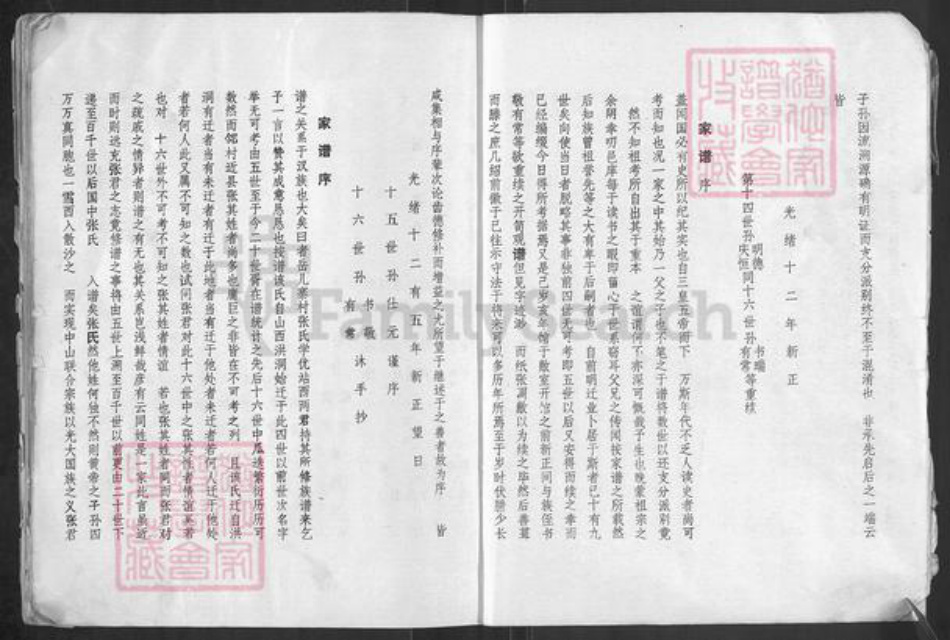 子孙因流溯源确有明证而支分派别终不至于混淆也　非承先启后之一端云
皆
光绪十二年新正
第十四世孙明德庆恒同十六世孙书瑞有常等重核
家谱序
盖闻国必有史所以纪其实也自三皇五帝而下　万斯年代不乏人读史者尚可
考而知也况一家之中其始乃一父之子也不笔之于谱将数世以还支分派别竟
然不知祖考所自出其于重本　之谊谓何不亦深可慨哉予生也晚蒙祖宗之
余荫幸叨邑庠每于读书之暇即留心于世系窃耳父兄之传闻按家谱之所载然
后知族曾祖誉先等之大有卑于后嗣者也　自前明迁业卜居于斯者已十有九
世矣向使当日者脱略其事非独前四世无可考即五世以后又安得而续之幸而
已经编缀今日得所考据焉又是己岁亥年馆于敝室开馆之前新正间与族侄书
敬有常等欲重续之开简观谱但见字迹渺　而纸张凋敝以为续之毕然后善
而誊之庶几绍前徽于已往示守法于将来可以多历年所焉至于岁时伏腊少长
咸集相与序辈次论齿德修补而增益之尤所望于继述于之善者故为序　皆
光绪十二有五年新正望日
十五世孙仕元谨序
十六世孙书敬有常沐手抄
家谱序
谱之关系于汉族也大矣曰者岳儿寨村张氏学优站西两君持其所修族谱来乞
予一言以赞其成意恳恳也按谱该氏自山西洪洞始迁于此四世以前世次名字
举无可考由五世至于今二十世胥在谱统计之先后十六世中瓜迭繁衍历历可
数然而邻村近县张其姓者尚多也庸讵之非皆在不可考之列　且该氏迁自洪
洞有迁者当有未迁者有迁于此地者当有迁于他处者未迁者若何人迁于他处
者若何人此又属不可知之数也试问张君对此十六世中之张其姓者情谊其若
也对　十六世外不可考不可知之张其姓者情谊　若也张其姓者同而张君对
之疏戚之情异者则谱之有无也其关系岂浅鲜哉彦有云同姓是一家此言虽近
而时则迭充张君之志竟修谱之事将由五世上溯至百千世以前更由二十世下
递至百千世以后国中张氏　入谱矣张氏然他姓何独不然则黄帝之子孙四
万万真同胞也一雪西人散沙之　而实现中山联合宗族以光大国族之义张君